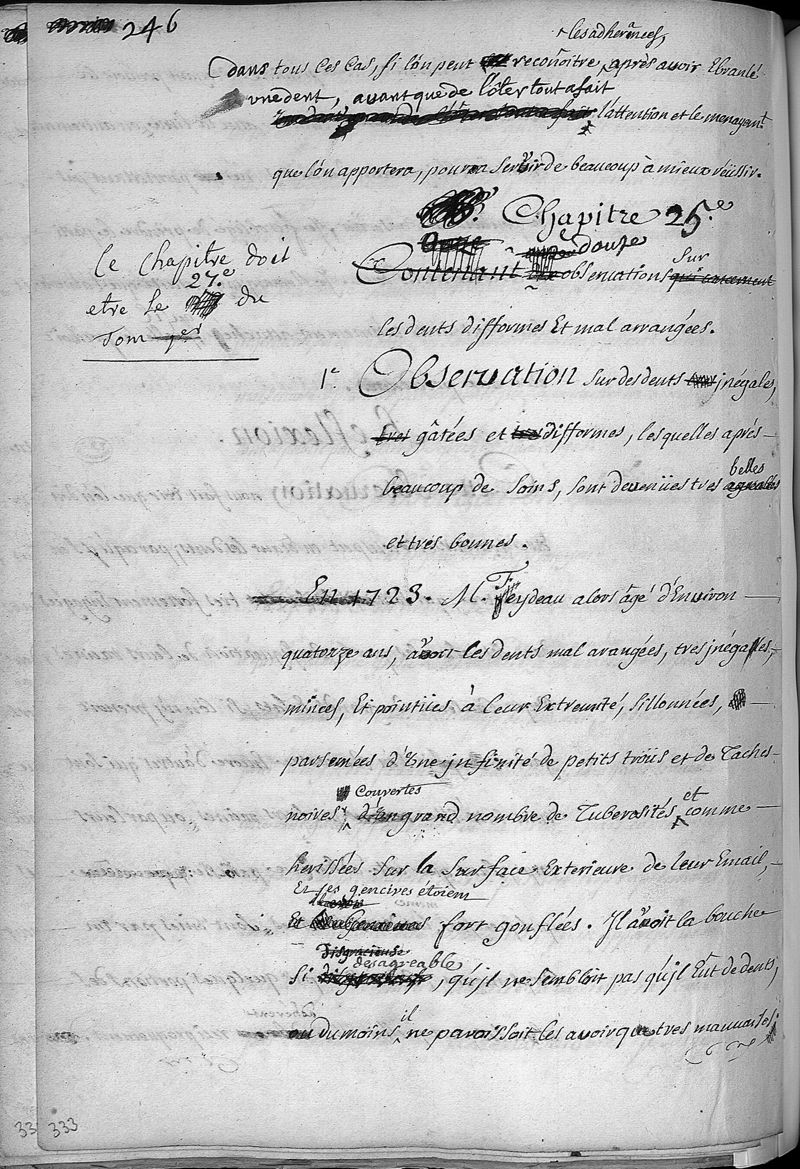 246
les adherences,
Dans tous ces cas, si l'on peut reconoitre, après avoir Ebranlé
une dent, avant que de l'ôter tout a fait
l'attention et le menagemt
que l'on apportera, pourra servir de beaucoup à mieux réüssir.
Chapitre 25.e
douze
Contenant observations sur qui concernent
Ce Chapitre doit
27.e
etre Le du
Tom 1er
les dents difformes Et mal arrangées.
1e Observation sur des dents jnégales,
tres gâtées et tres difformes, lesquelles aprés
belles
beaucoup de soins, sont devenües tres agreables
et tres bonnes.
En 1723. M. Feydeau alors âgé d'Environ
quatorze ans, avoit les dents mal arangées, tres jnégalles,
minces, Et pointües à leur Extremité, sillonnées,
parsemées d'Une jnfinité de petits troüs et de Taches
Couvertes
noires, d'un grand nombre de Tuberosités et comme
herissées sur la surface Exterieure de leur Email,
Et ses gencives étoient
Et fort gouflées. Jl avoit la bouche
Disgracieuse
desagreable
si, qu'jl ne sembloit pas qu'jl Eût de dents,
ou du moins il ne paroissoit les avoir que tres mauvaises.
333